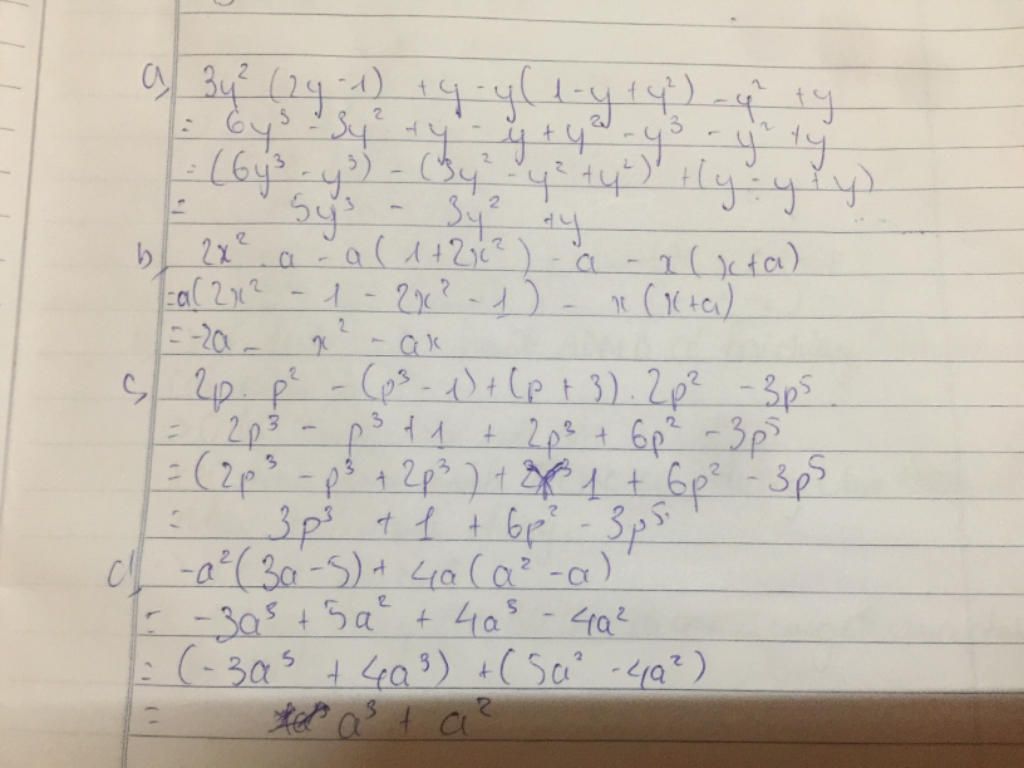 a, 3y² (2y - 1) + y - y(1 - y + y²) - y² + y
= 6y³ - 3y² + y - y + y² - y³ - y² + y
= (6y³ - y³) - (3y² - y² + y²) + (y - y + y)
= 5y³ - 3y² + y
b, 2x² . a - a(1 + 2x²) - a - x(x + a)
= a(2x² - 1 - 2x² - 1) - x(x + a)
= -2a - x² - ax
c, 2p . p² - (p³ - 1) + (p + 3) . 2p² - 3p⁵
= 2p³ - p³ + 1 + 2p³ + 6p² - 3p⁵
= (2p³ - p³ + 2p³) + 1 + 6p² - 3p⁵
= 3p³ + 1 + 6p² - 3p⁵
d, -a²(3a - 5) + 4a(a² - a)
= -3a³ + 5a² + 4a³ - 4a²
= (-3a³ + 4a³) + (5a² - 4a²)
= a³ + a²